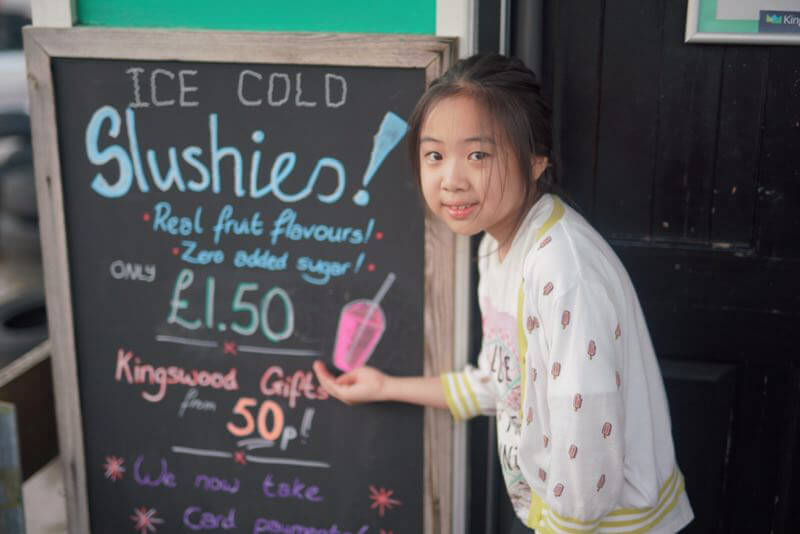 ICE COLD
Slushies!
Real fruit flavours!
Zero added sugar!
ONLY
£1.50
Kingswood Gifts
from 50p!
We now take
Card payments!
King